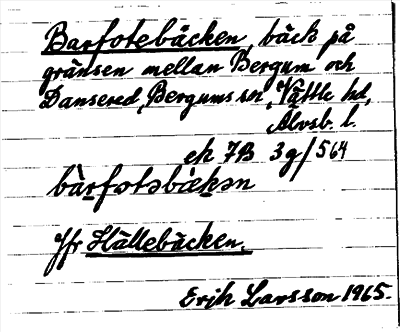 Barfotebäcken, bäck på
gränsen mellan Bergum och
Dansered, Bergums sn, Vättle hd,
Älvsb. l.
ek 7B 3g/564
bàrfotəbæ̀kən
Jfr Hällebäcken.
Erik Larsson 1965.